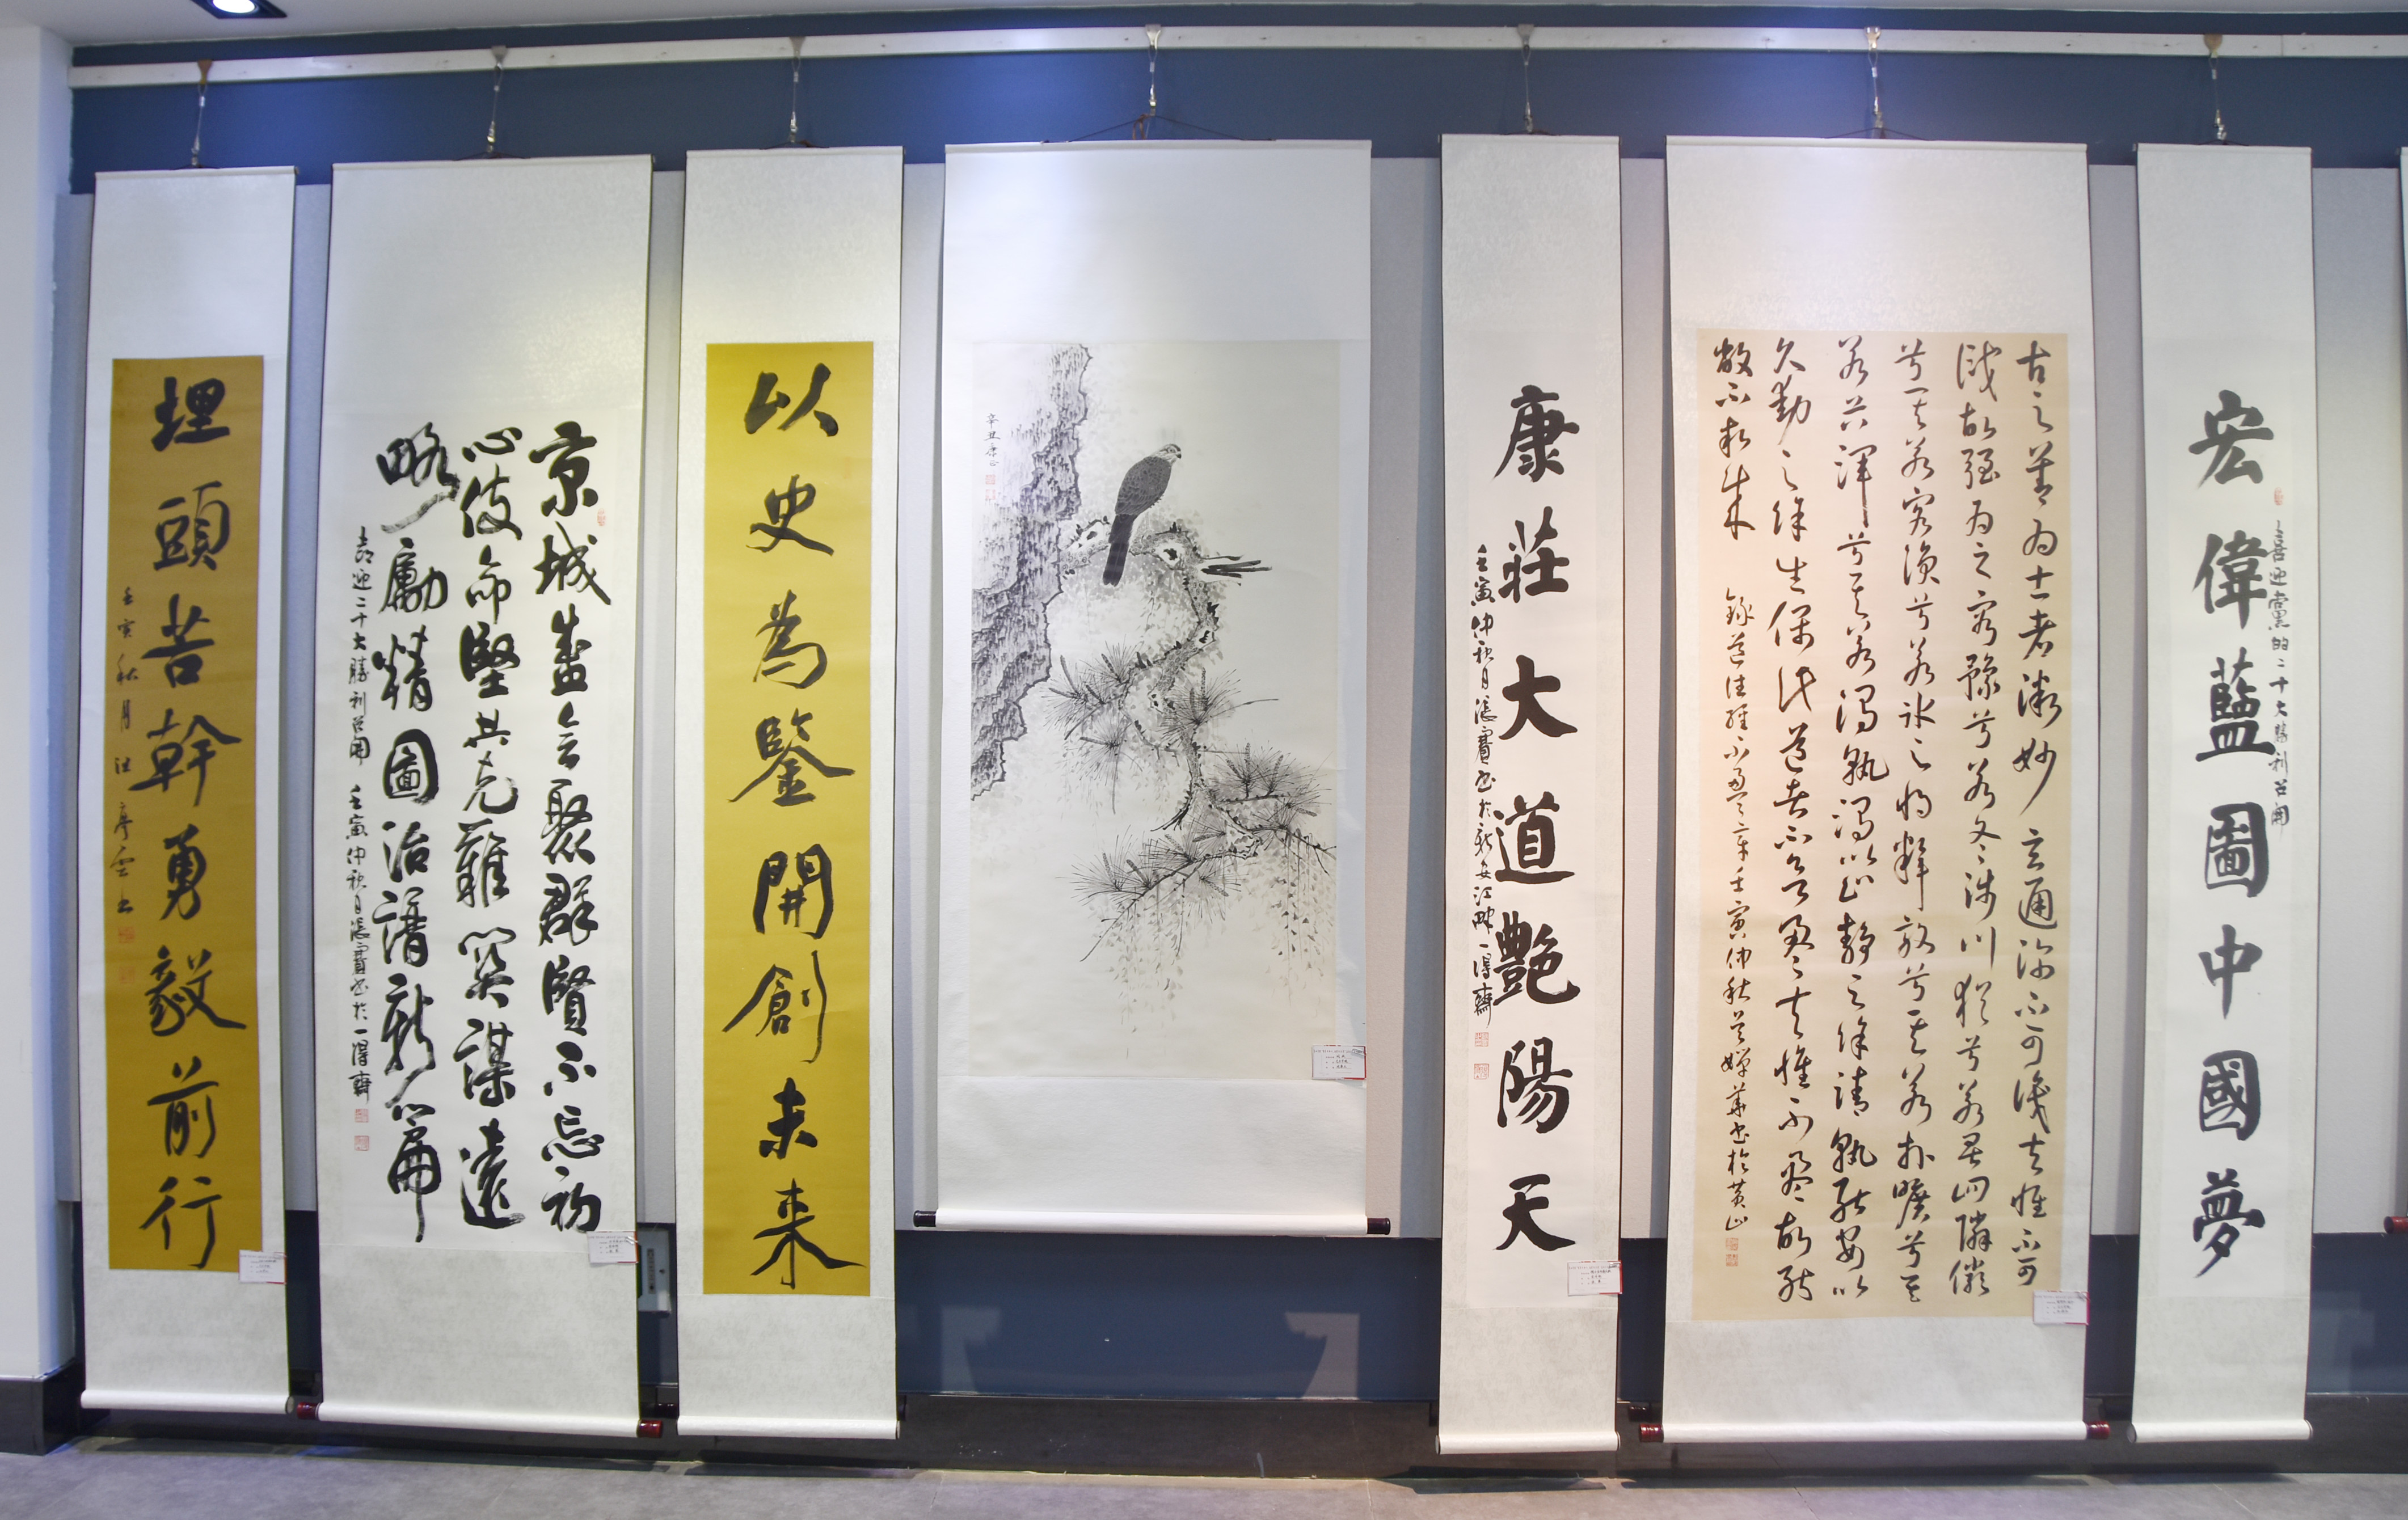 宏偉藍圖中國夢
喜迎黨的二十大勝利召開
古之善為士者微妙玄通深不可識夫惟不可
識故強為之容豫兮若冬涉川猶兮若畏四隣儼
兮其若容渙兮若冰之將釋敦兮其若朴曠兮其
若谷渾兮其若濁孰濁以止靜之徐清孰能安以
久動之徐生保此道者不欲盈夫惟不盈故能
敝不新成
錄道德經 章壬寅仲秋 書於黃山
康莊大道艷陽天
壬寅仲秋月張寶書於新安江畔一得齋
辛丑
以史為鑒開創未來
京城盛會聚群賢不忘初
心使命堅共克難關謀遠
略勵精圖治譜新篇
喜迎二十大勝利召開 壬寅仲秋月張寶書於一得齋
埋頭苦幹勇毅前行
壬寅秋月汪 雲書